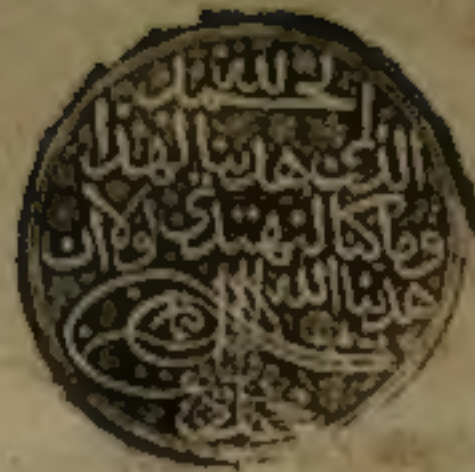 الحمد لله
الذي هدینا لهذا
وما كنا لنهتدي لولا ان
هدینا الله